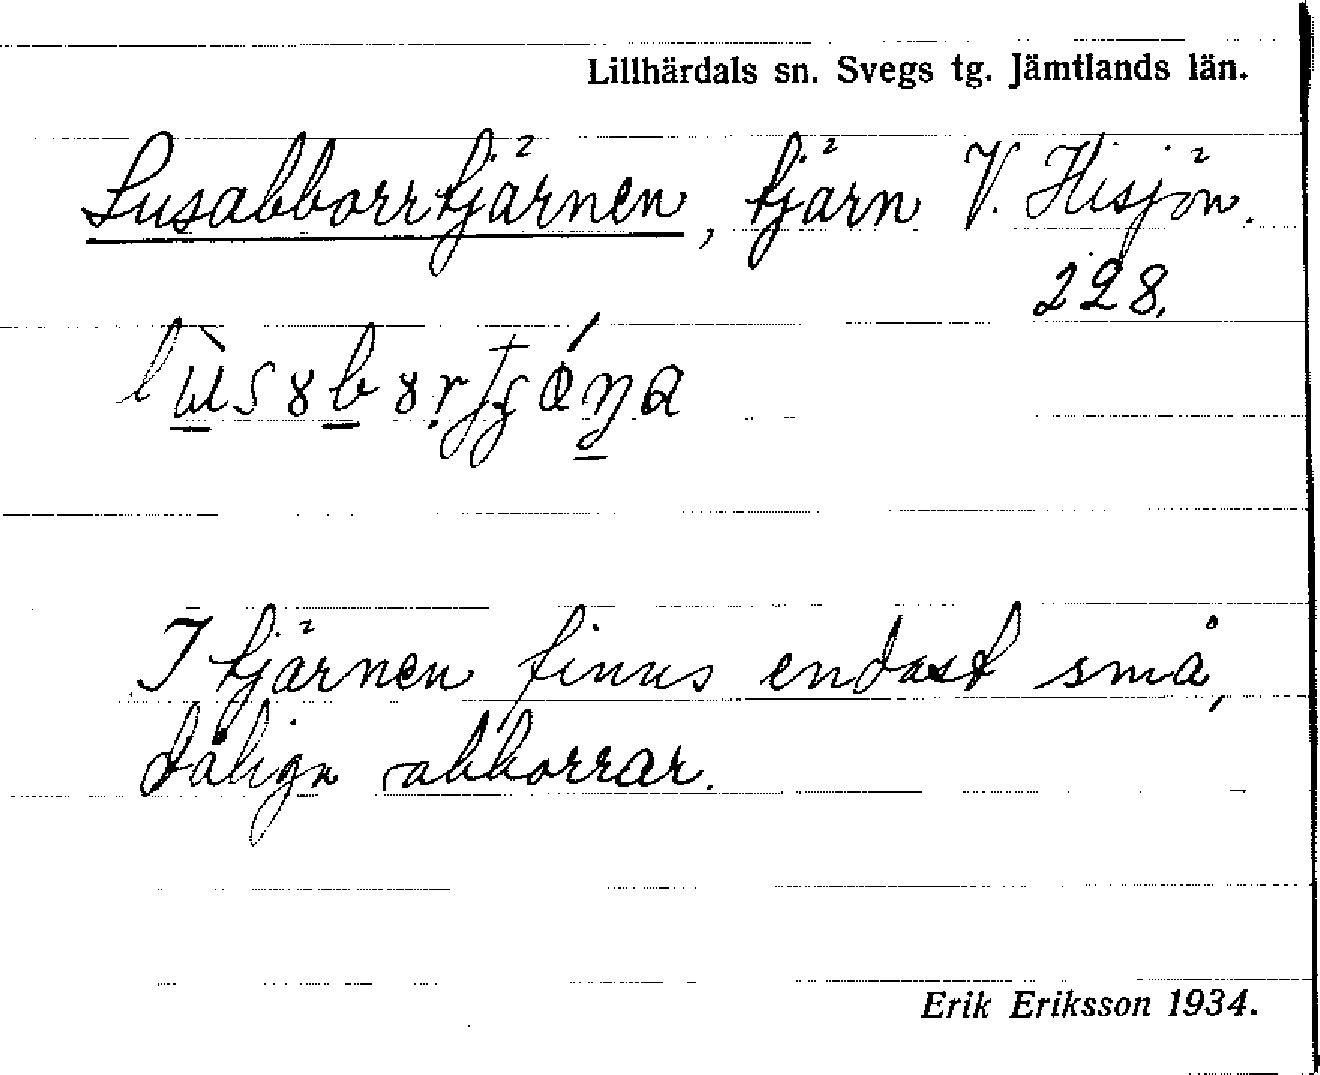 Lillhärdals sn. Svegs tg. Jämtlands län.
Lusabborrtjärnen, tjärn V. Hisjön.
228.
I tjärnen finns endast små,
dåliga abborrar.
Erik Eriksson 1934.